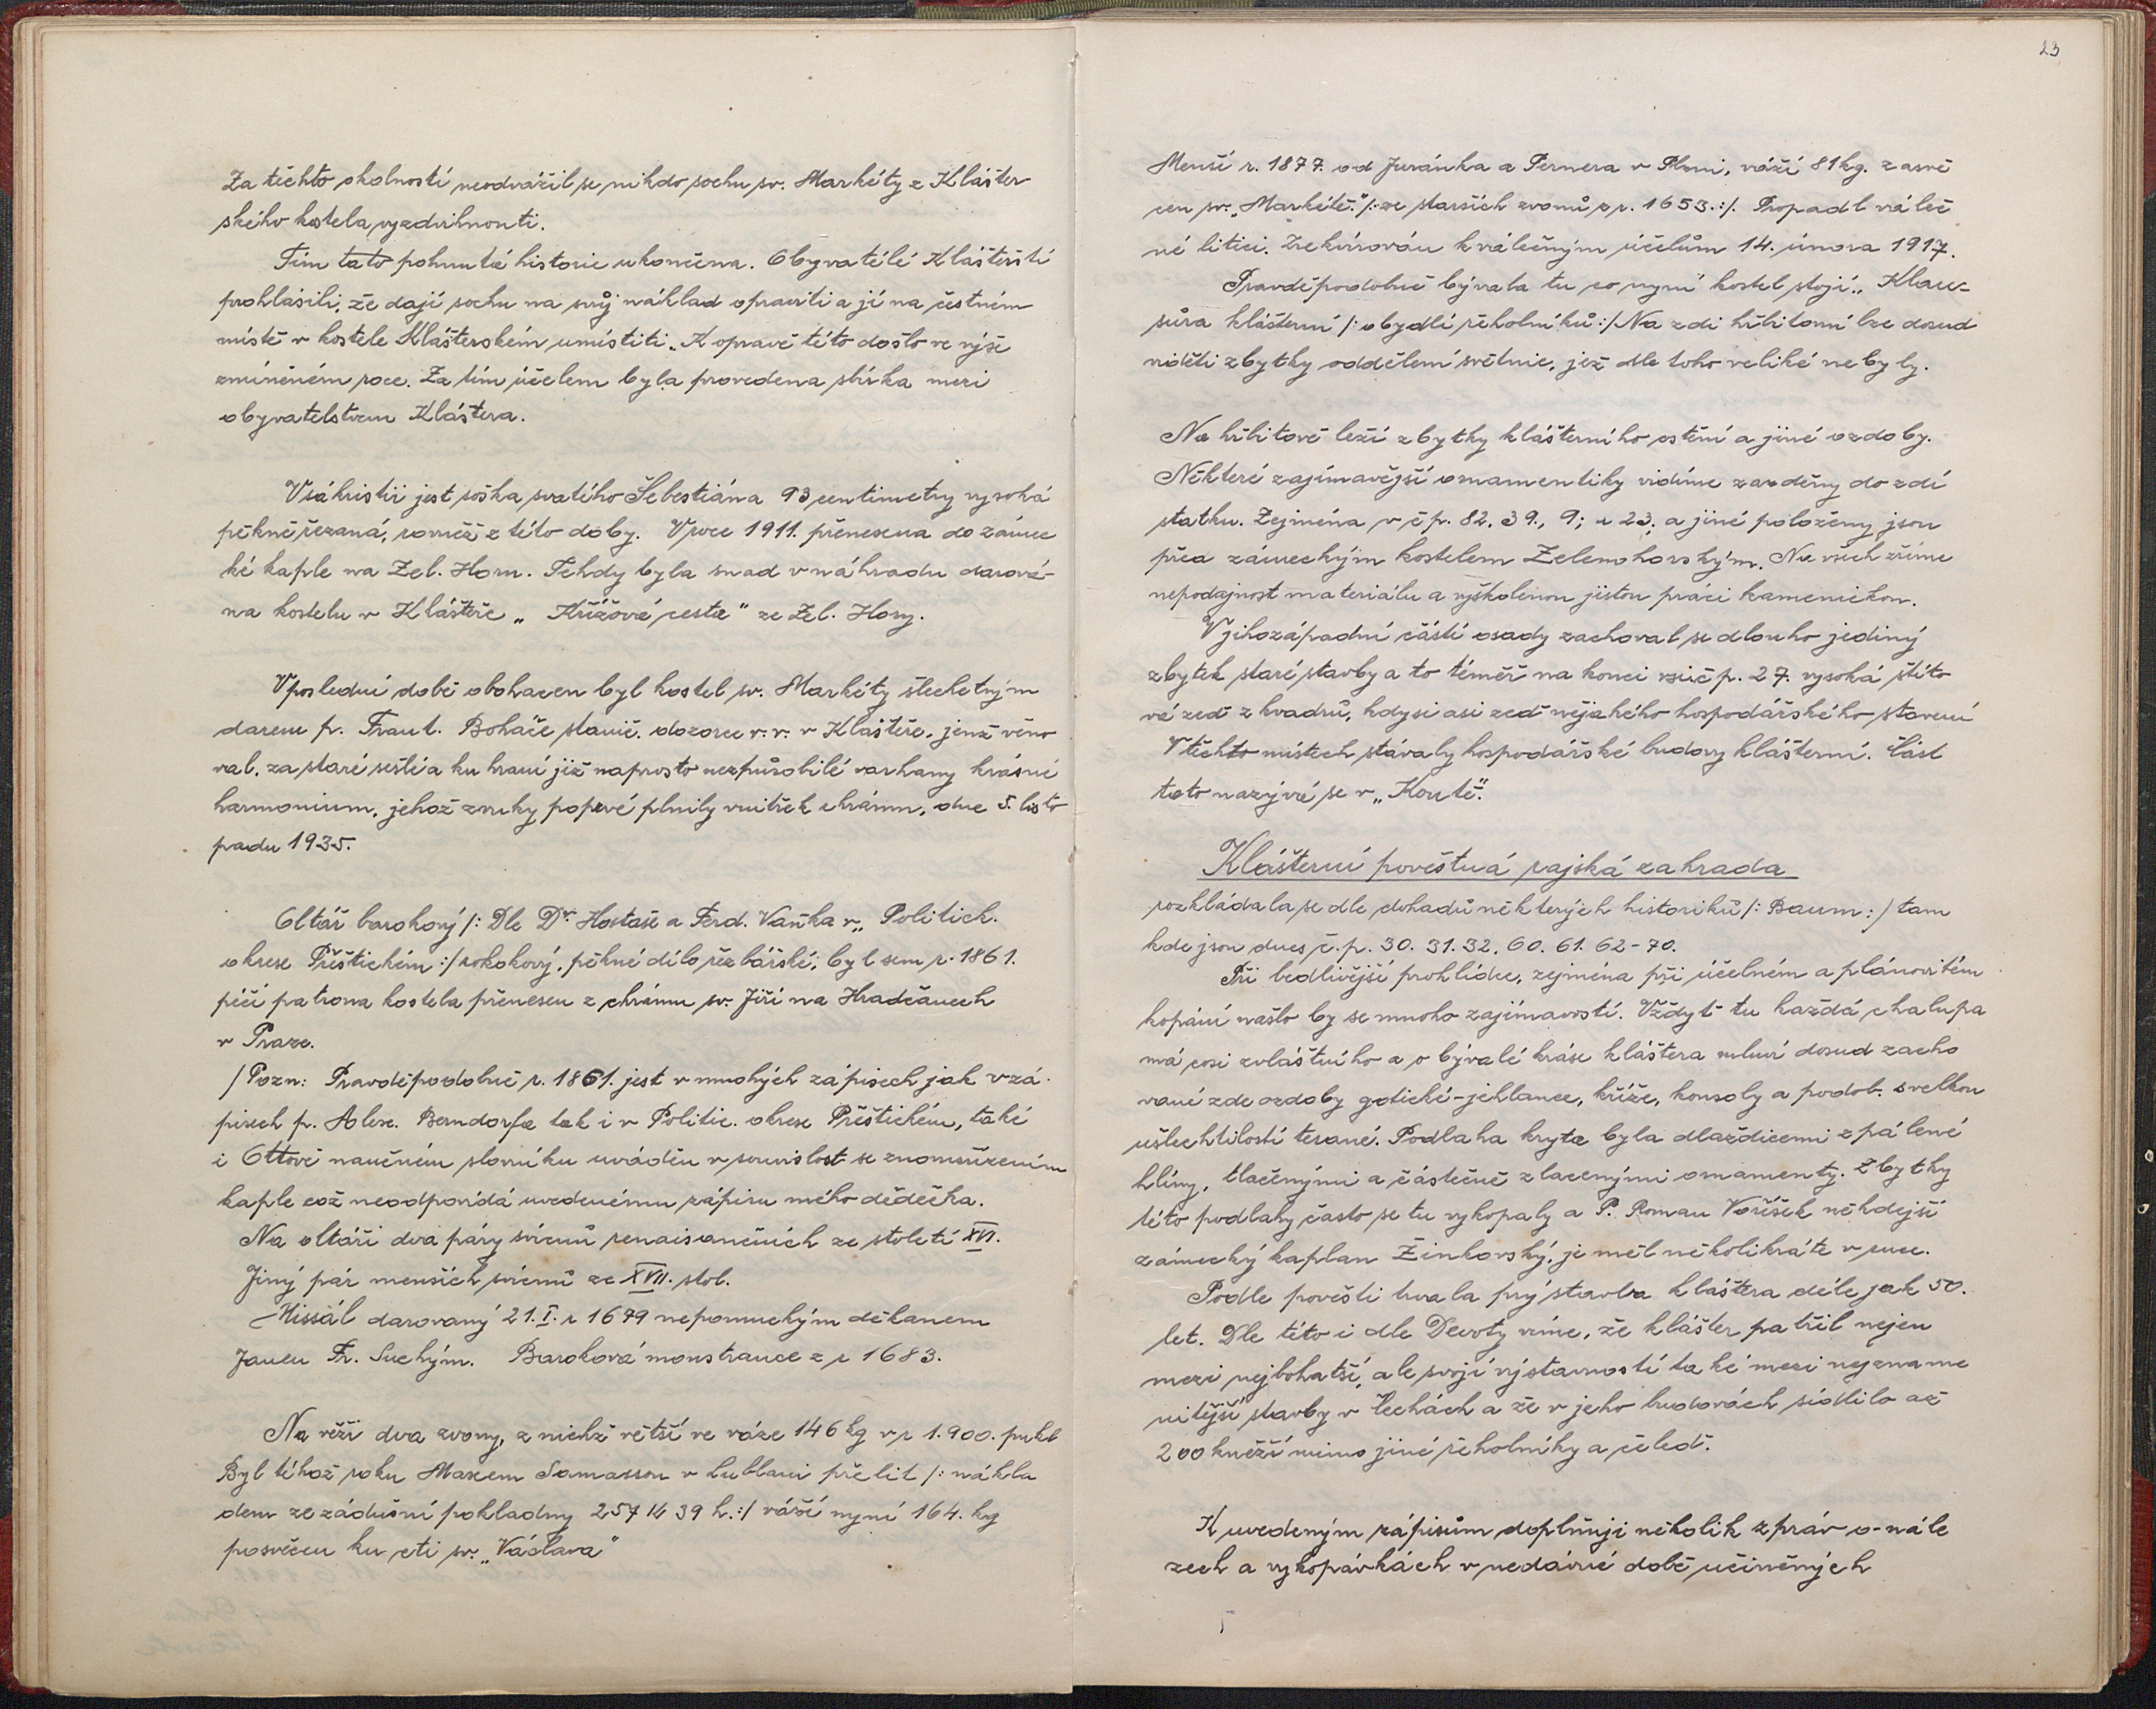 Za těchto okolností neodvážil se nikdo sochu sv. Markéty z Klášter-
ského kostela vyzdvihnouti.
Tím tato pohnutá historie ukončena. Obyvatelé Klášterští
prohlásili, že dají sochu na svůj náhlad opraviti a jí na čestném
místě v kostele Klášterském umístiti. K opravě této došlo ve výše
zmíněném roce. Za tím účelem byla provedena sbírka mezi
obyvatelstvem Kláštera.
V sákristii jest soška svatého Šebestiána 93 centimetry vysoká
pěkně řezaná, rovněž z této doby. V roce 1911. přenesena do zámec
ké kaple na Zel. Horu. Tehdy byla snad v náhradu darová-
na kostelu v Klášteře „Křížová cesta" ze Zel. Hory.
V poslední době obohacen byl kostel sv. Markéty šlechetným
darem p. Frant. Boháče stanič. dozorce v. v. v Klášteře, jenž věno
val, za staré sešlé a ku hraní již naprosto nezpůsobilé varhany krásné
harmonium, jehož zvuky poprvé plnily vnitřek chrámu, dne 5. listo
padu 1935.
Oltář barokový /: Dle Dr. Hostaše a Ferd. Vaňka v „Politick.
okrese Přeštickém :/ rokokový, pěkné dílo řezbářské, byl sem r. 1861.
péčí patrona kostela přenesen z chrámu sv. Jiří na Hradčanech
v Praze.
/Pozn: Pravděpodobně r. 1861. jest v mnohých zápisech jak v zá-
pisech p. Alex. Berndorfa tak i v Politic. okrese Přeštickém, také
i Ottově naučném slovníku uváděn v souvislost se znovuzřízením
kaple což neodpovídá uvedenému zápisu mého dědečka.
Na oltáři dva páry svícnů renaisančních ze století XVI.
Jiný pár menších svícnů ze XVII. stol.
Missál darovaný 21. I. r 1679 nepomuckým děkanem
Janem Fr. Suchým. Baroková monstrance z r 1683.
Na věži dva zvony, z nichž větší ve váze 146 kg v r 1.900. pukl
Byl téhož roku Maxem Samassou v Lublani přelit /: nákla
dem ze zádušní pokladny 257 K 39 h. :/ váží nyní 164. kg
posvěcen ku cti sv. „Václava"
23
Menší r. 1877. od Juránka a Pernera v Plzni, váží 81 kg. zasvě
cen sv. „Markétě." /: ze starších zvonů z r. 1653. :/. Propadl váleč
né litici. Zrekvírován k válečným účelům 14. února 1917.
Pravděpodobně bývala tu co nyní kostel stojí „Klau-
sůra klášterní /: obydlí řeholníků :/ Na zdi hřbitovní lze dosud
viděti zbytky oddělení světnic, jež dle toho veliké nebyly.
Na hřbitově leží zbytky klášterního ostění a jiné ozdoby.
Některé zajímavější ornamentiky vidíme zazděny do zdí
statku. Zejména v čp. 82. 39., 9; u 23; a jiné položeny jsou
před zámeckým kostelem Zelenohorským. Na všech zříme
nepodajnost materiálu a vyškolenou jistou práci kamenickou.
V jihozápadní části osady zachoval se dlouho jediný
zbytek staré stavby a to téměř na konci vsi č p. 27. vysoká štíto
vá zeď z kvadrů, kdysi asi zeď nějakého hospodářského stavení
V těchto místech stávaly hospodářské budovy klášterní. Část
tato nazývá se v „Koutě".
Klášterní pověstná rajská zahrada
rozkládala se dle dohadů některých historiků /: Baum :/ tam
kde jsou dnes č. p. 30. 31. 32. 60. 61. 62-70.
Při bedlivější prohlídce, zejména při účelném a plánovitém
kopání našlo by se mnoho zajímavostí. Vždyť tu každá chalupa
má cosi zvláštního a o bývalé kráse kláštera mluví dosud zacho
vané zde ozdoby gotické-jehlance, kříže, konsoly a podob. s velkou
ušlechtilostí tesané. Podlaha kryta byla dlaždicemi z pálené
hlíny, tlačenými a částečně zlacenými ornamenty. Zbytky
této podlahy často se tu vykopaly a P. Roman Voříšek někdejší
zámecký kaplan Žinkovský, je měl několikráte v ruce.
Podle pověsti trvala prý stavba kláštera déle jak 50.
let. Dle této i dle Devoty víme, že klášter patřil nejen
mezi nejbohatší, ale svojí výstavností také mezi nejzname
nitější stavby v Čechách a že v jeho budovách sídlilo až
200 kněží mimo jiné řeholníky a čeleď.
K uvedeným zápisům doplňuji několik zpráv o nále
zech a vykopávkách v nedávné době učiněných